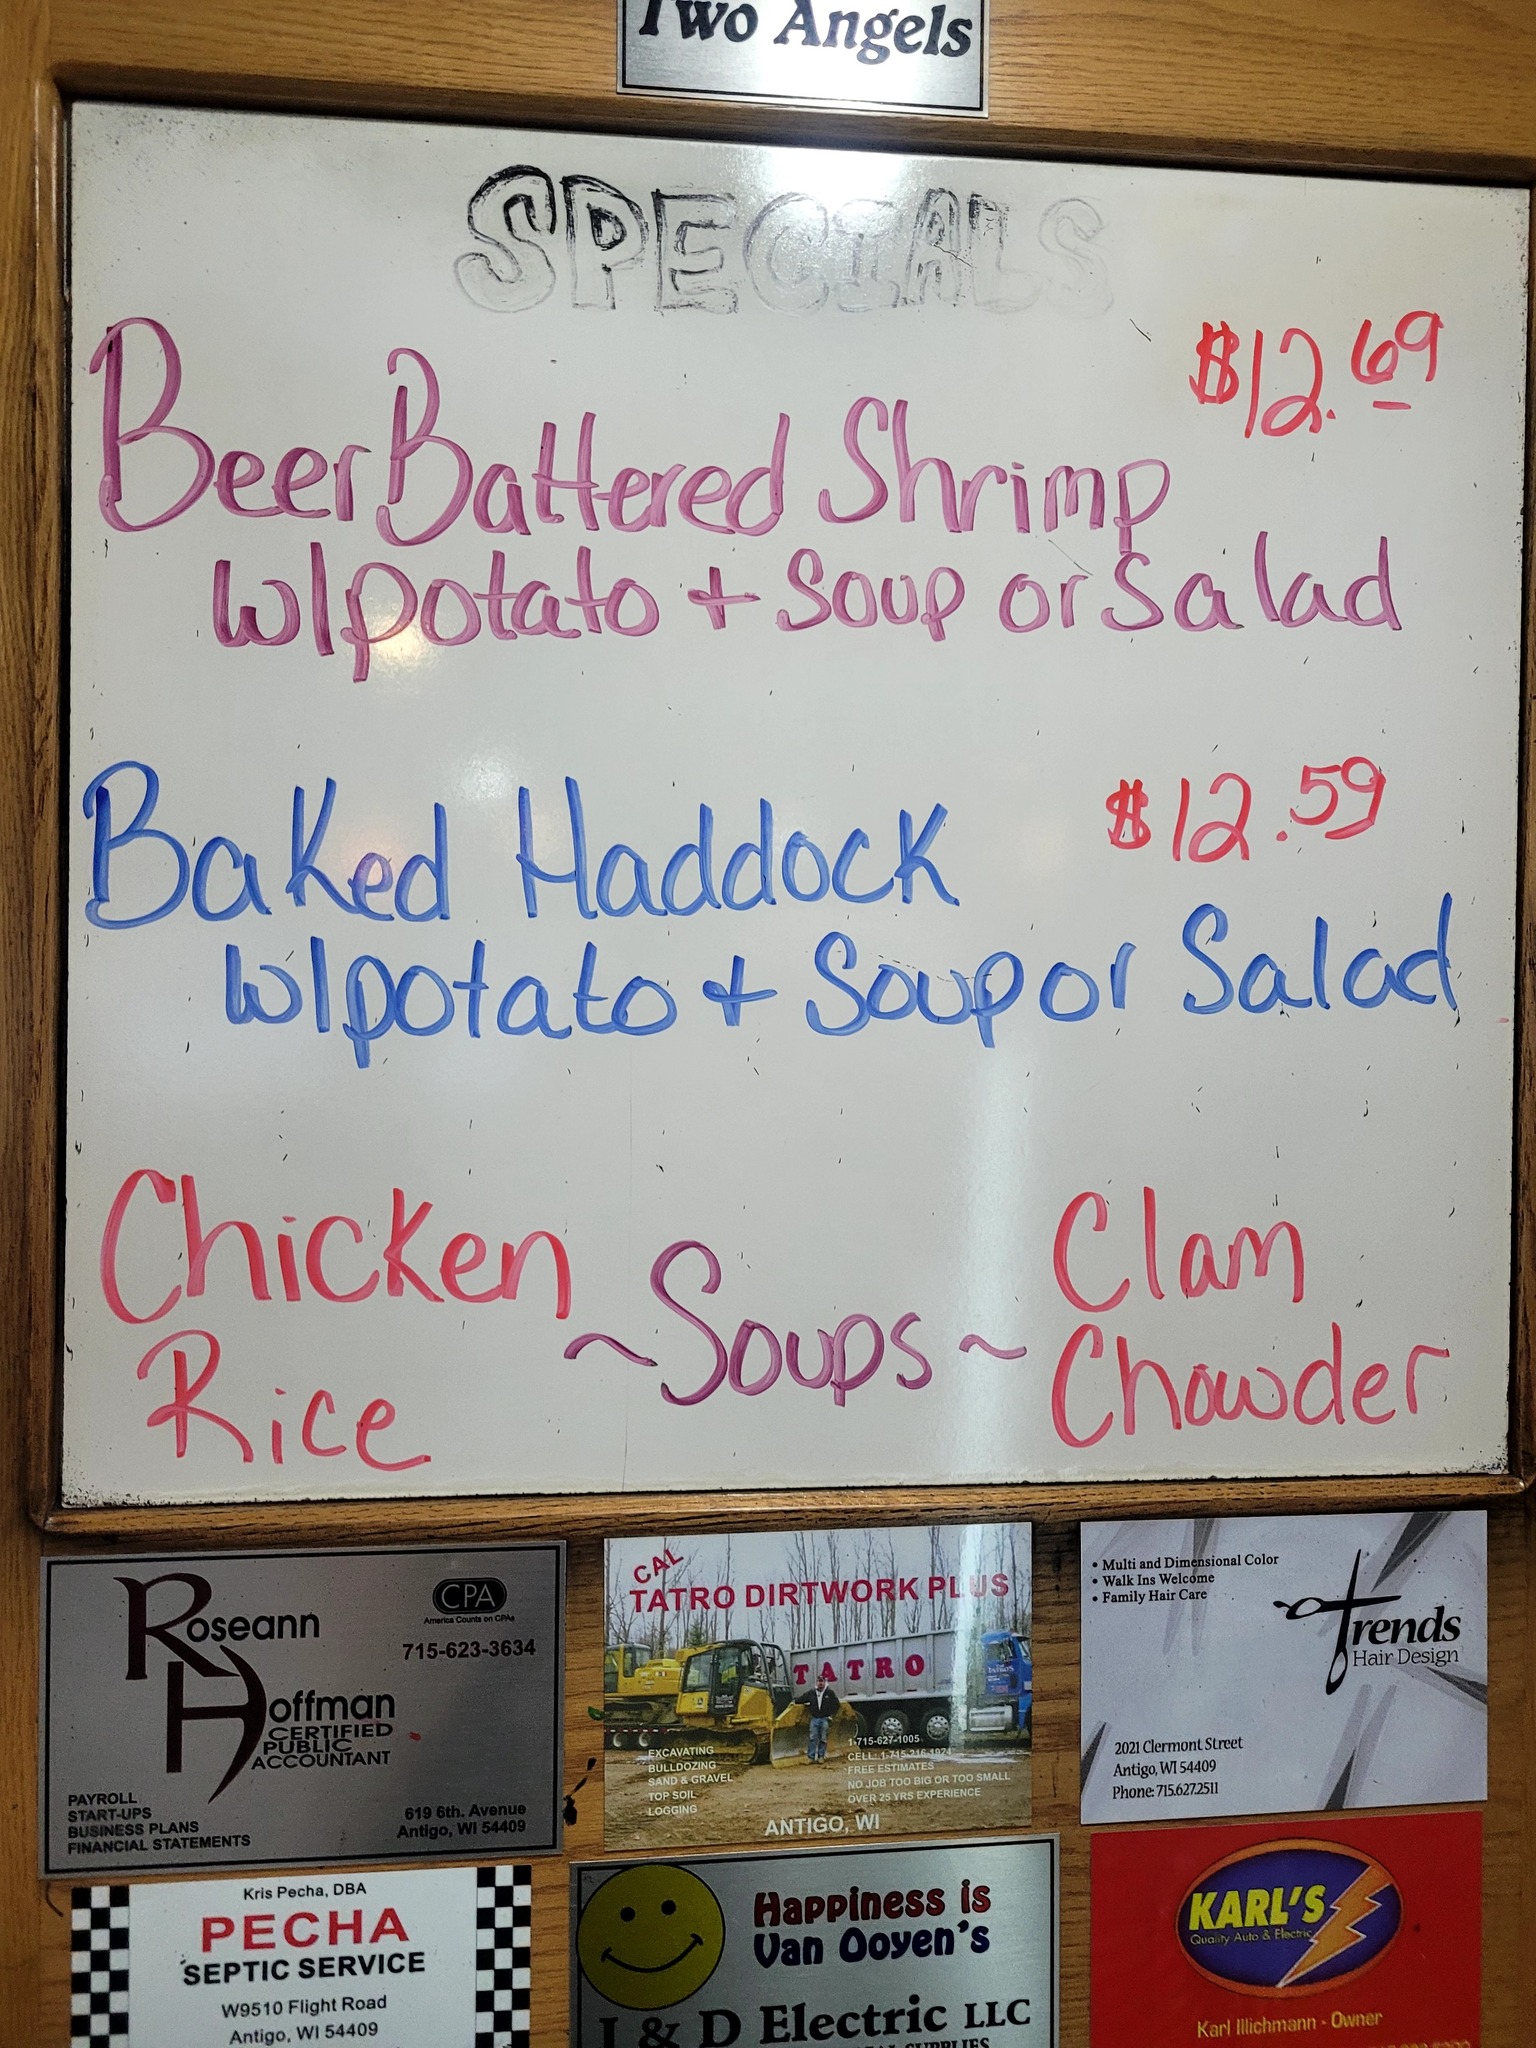 Two Angels
SPECIALS
$12.69
Beer Battered Shrimp
w/potato + Soup or Salad
$12.59
Baked Haddock
w/potato + Soup or Salad
Chicken
Rice
~Soups~
Clam
Chowder
Roseann
Hoffman
CERTIFIED
PUBLIC
ACCOUNTANT
CPA
America Counts on CPAs
715-623-3634
PAYROLL
START-UPS
BUSINESS PLANS
FINANCIAL STATEMENTS
619 6th. Avenue
Antigo, WI 54409
CAL
TATRO DIRTWORK PLUS
TATRO
EXCAVATING
BULLDOZING
SAND & GRAVEL
TOP SOIL
LOGGING
1-715-627-1005
CELL: 1-715-216-1924
FREE ESTIMATES
NO JOB TOO BIG OR TOO SMALL
OVER 25 YRS EXPERIENCE
ANTIGO, WI
• Multi and Dimensional Color
• Walk Ins Welcome
• Family Hair Care
Trends
Hair Design
2021 Clermont Street
Antigo, WI 54409
Phone: 715.627.2511
Kris Pecha, DBA
PECHA
SEPTIC SERVICE
W9510 Flight Road
Antigo, WI 54409
Happiness is
Van Ooyen's
& D Electric LLC
SUPPLIES
KARL'S
Quality Auto & Electric
Karl Illichmann - Owner